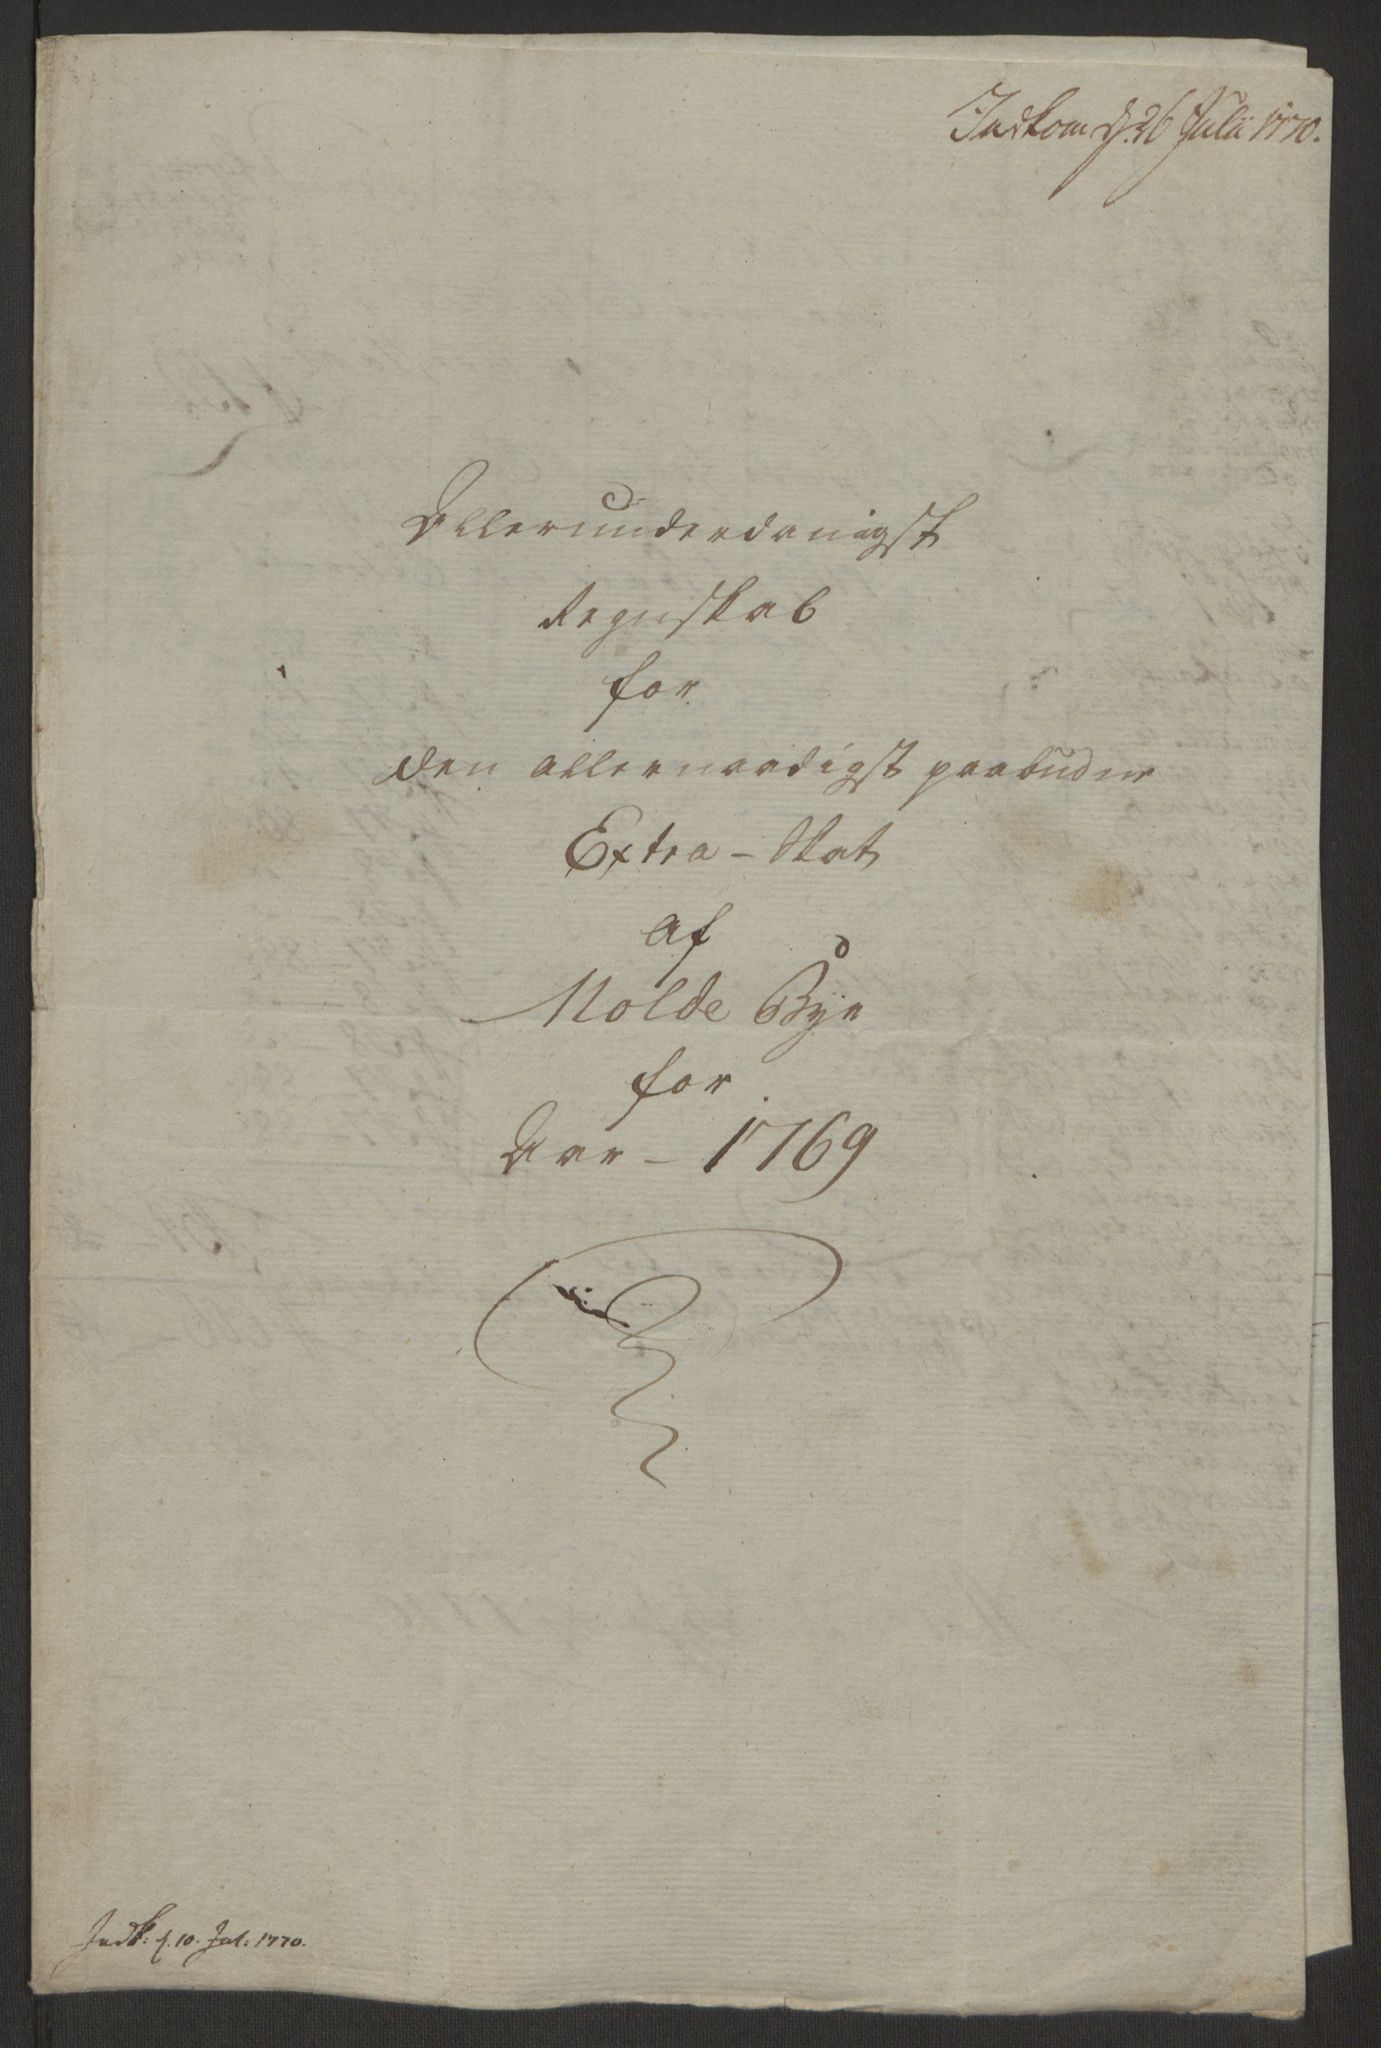 Indkom d. 26 Julii 1770.
Allerunderdanigst
Regnskab
for
den allernaadigst paabudne
Extra - Skat
af
Molde Bye
for
Aar - 1769
Indk: d. 10. Jul: 1770.